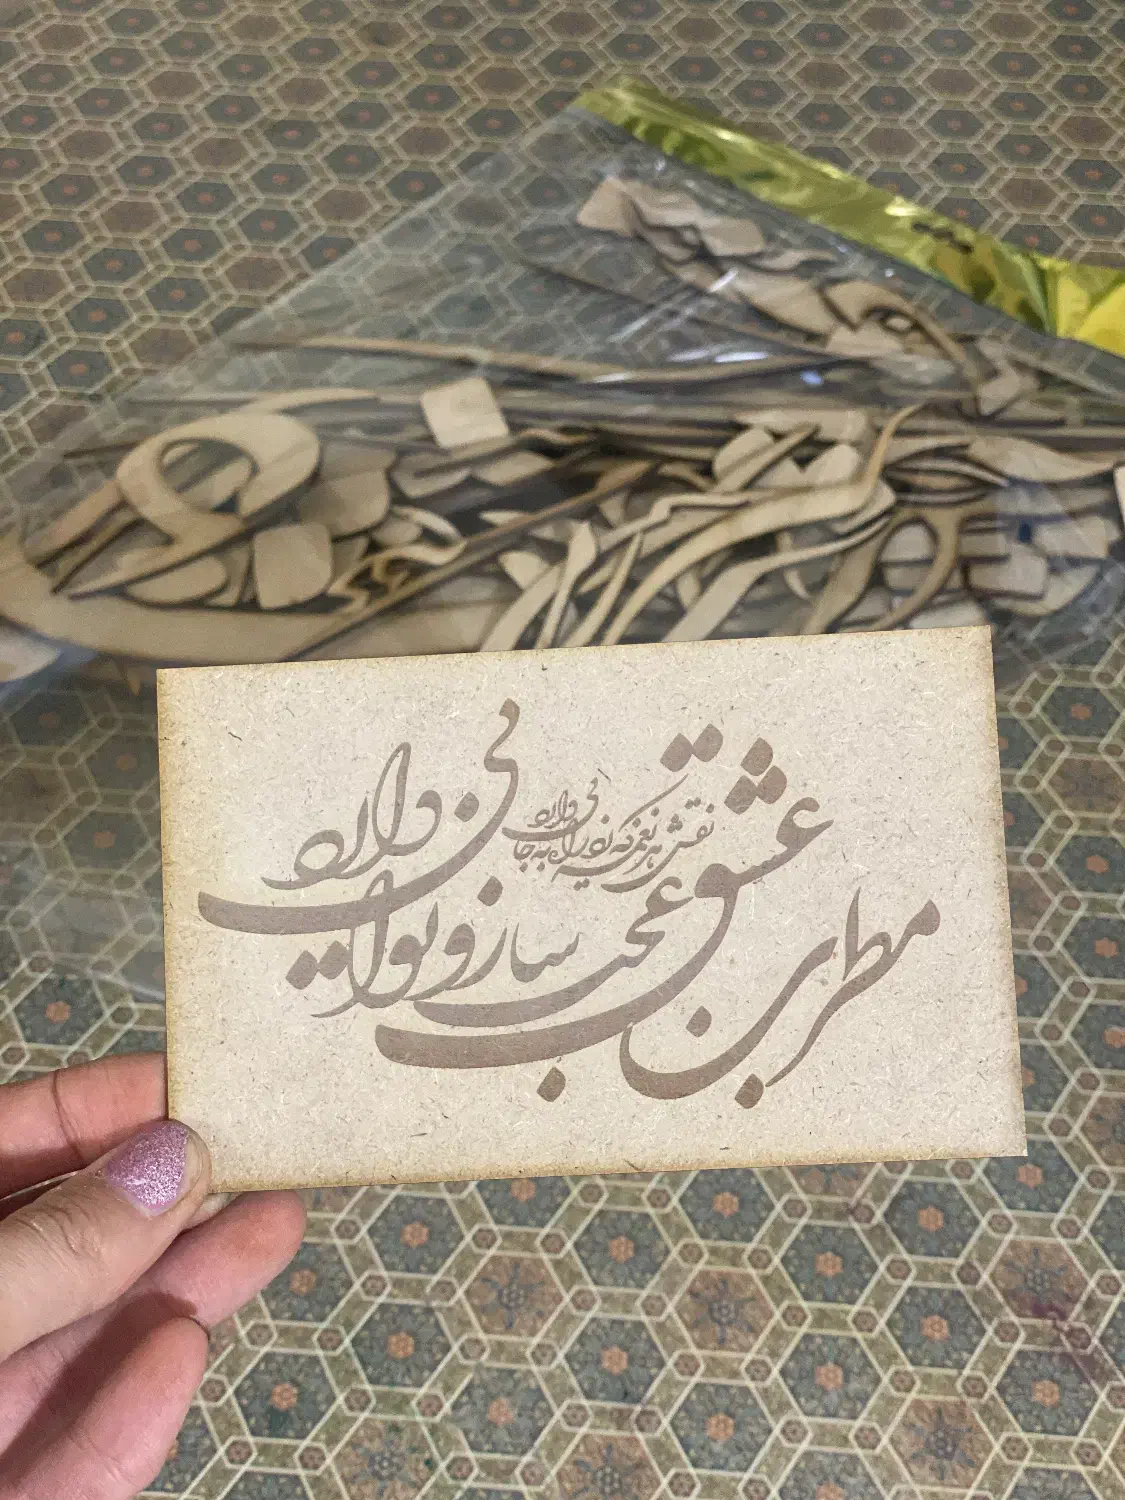 مطرب عشق عجب ساز و نوایی دارد
نقش هر نغمه که زد راه به جایی دارد